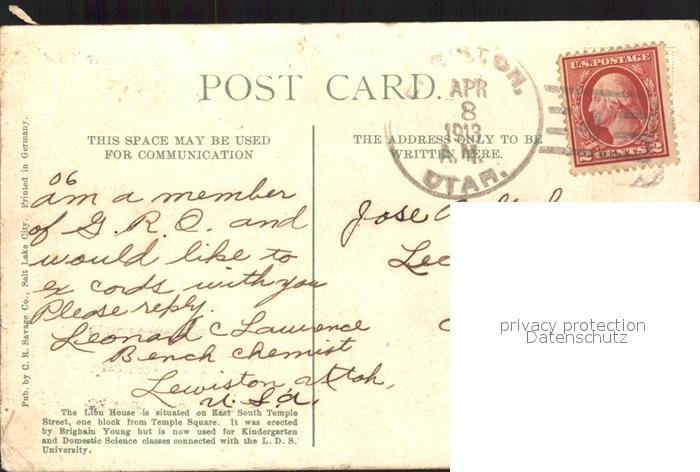 POST CARD.
THIS SPACE MAY BE USED
FOR COMMUNICATION
THE ADDRESS ONLY TO BE
WRITTEN HERE.
APR
8
1913
A.M.
UTAH.
U.S. POSTAGE
2 CENTS 2
06
am a member
of G. R. O. and
would like to
ex cords with you
Please reply.
Leonard C Lawrence
Bench Chemist
Lewiston, Utah,
U. S. A.
Jose
privacy protection
Datenschutz
Pub. by C. R. Savage Co., Salt Lake City. Printed in Germany.
The Lion House is situated on East South Temple
Street, one block from Temple Square. It was erected
by Brigham Young but is now used for Kindergarten
and Domestic Science classes connected with the L. D. S.
University.